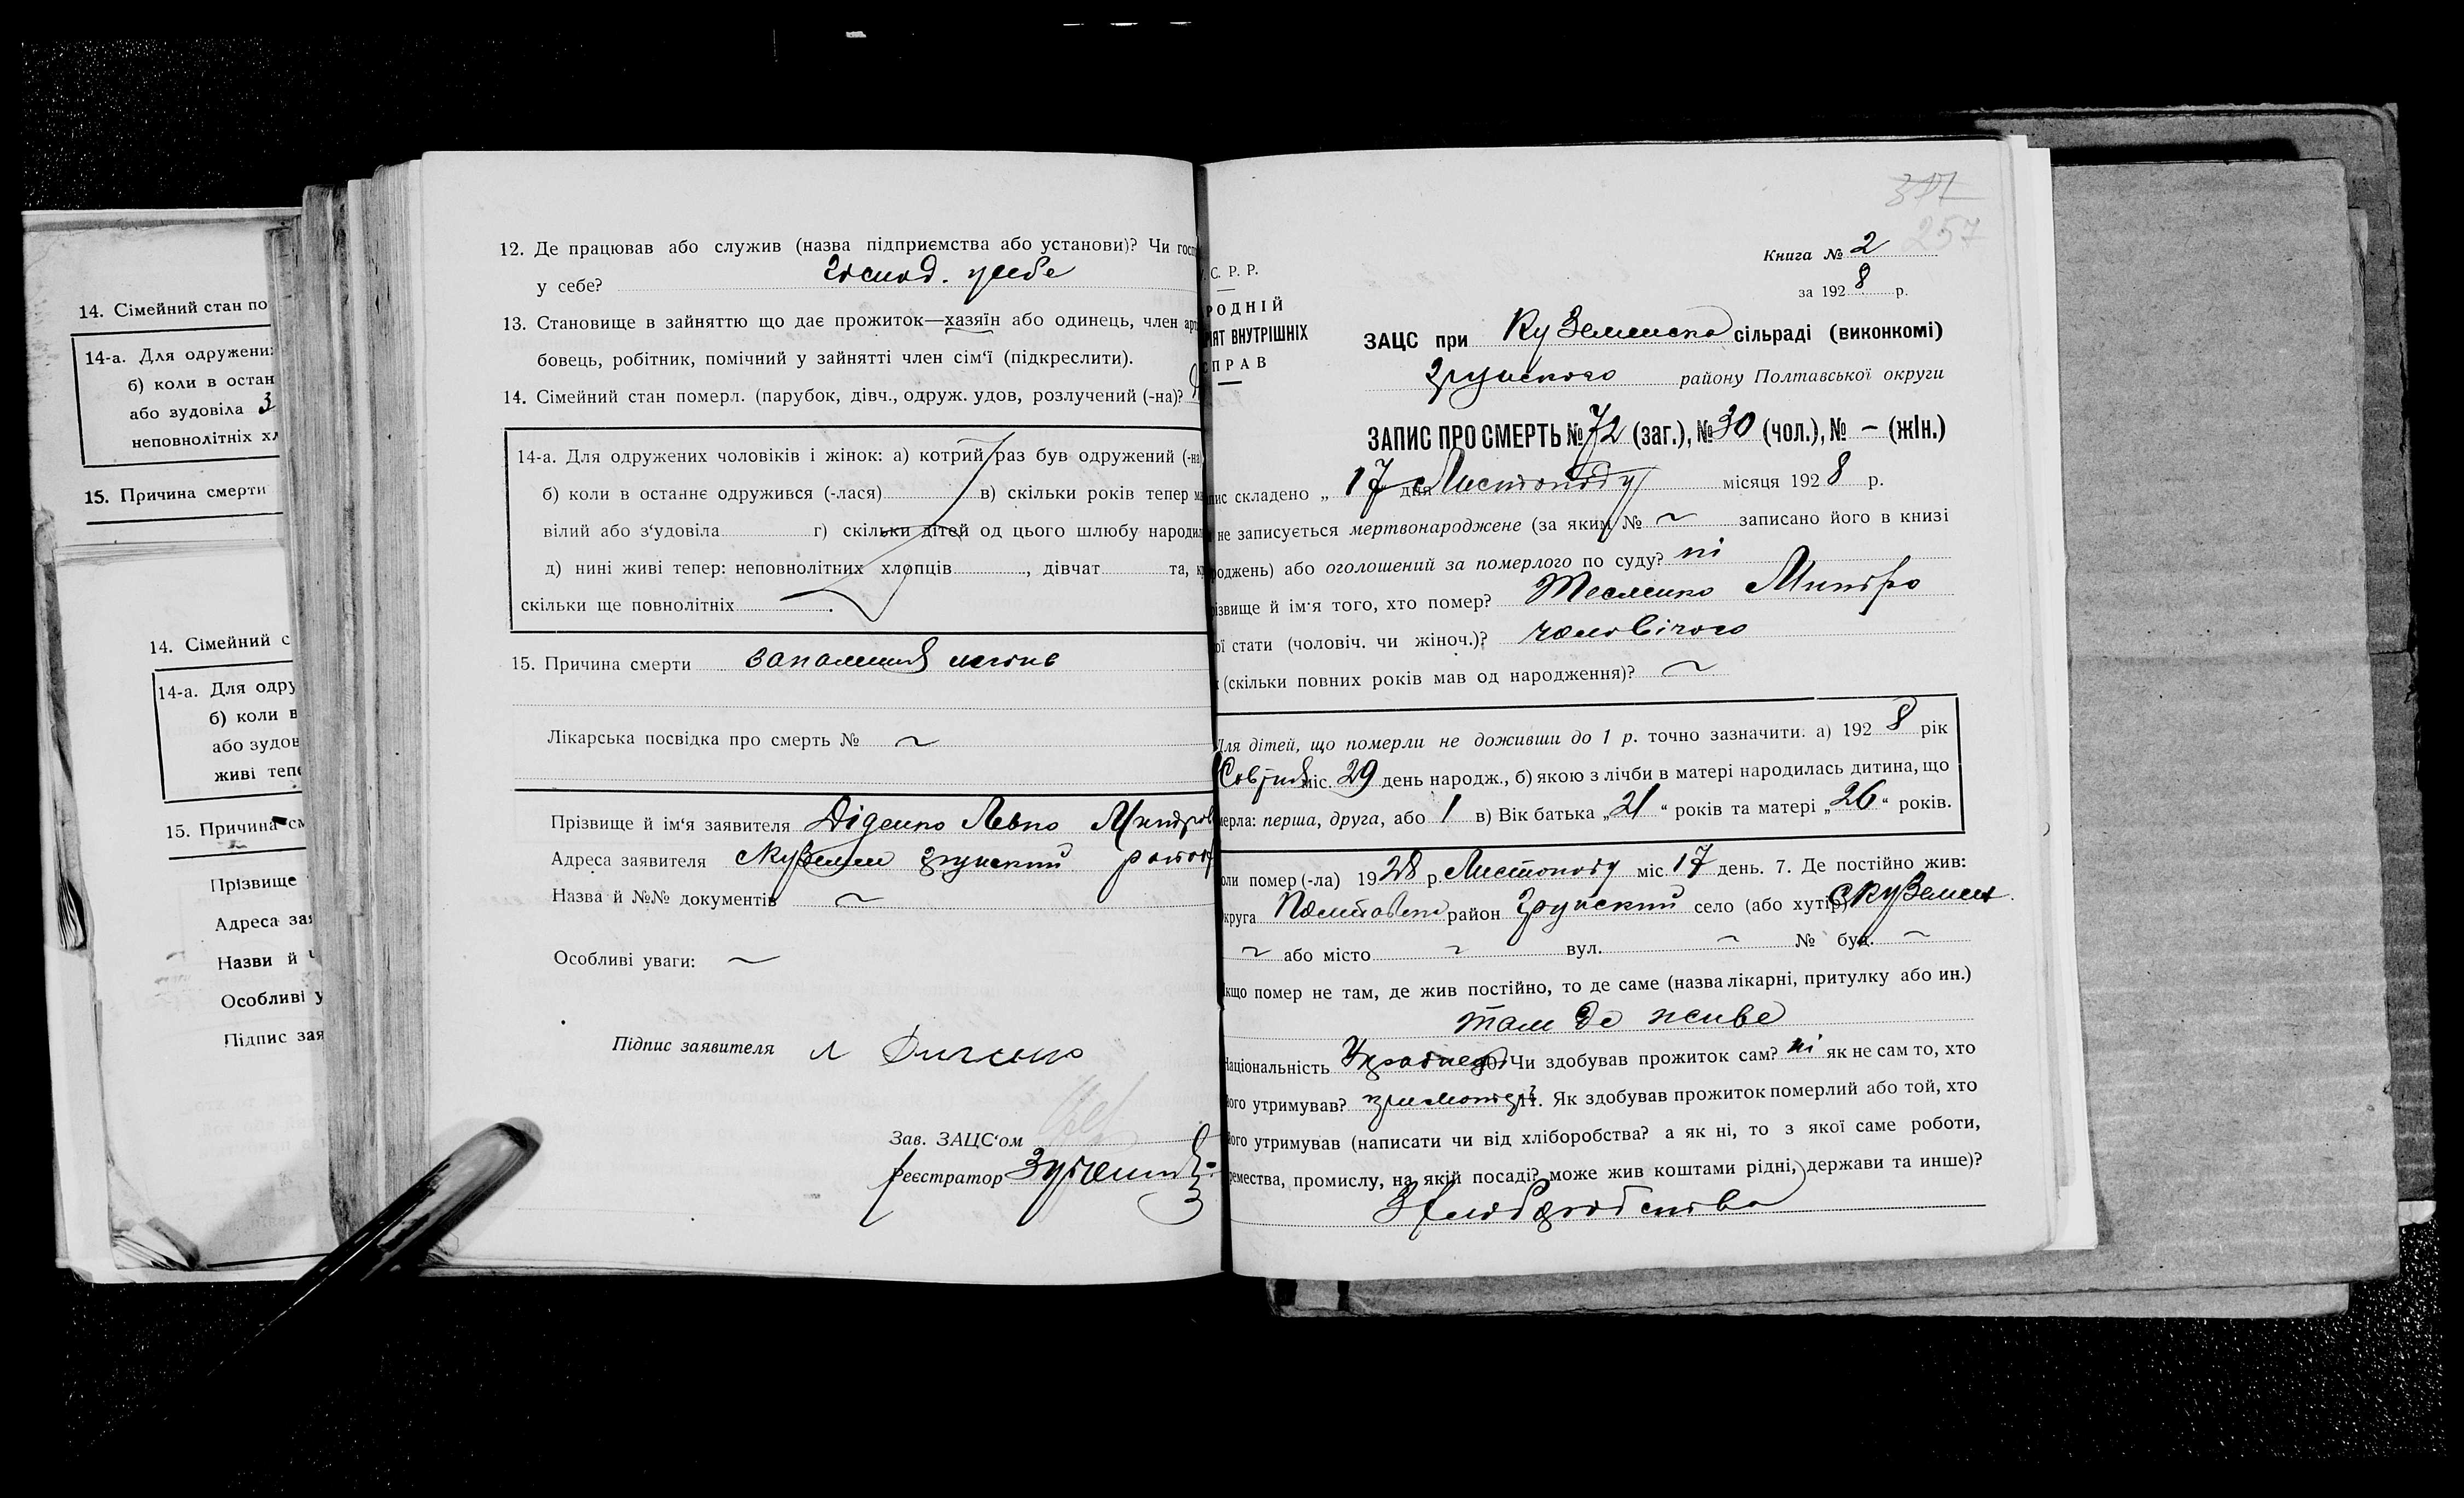 14. Сімейний стан по
14-а. Для одружени
б) коли в остан
або зудовіла З
неповнолітніх хл
15. Причина смерти
14. Сімейний с
14-а. Для одру
б) коли в
або зудов
живі тепе
15. Причина см
Прізвище
Адреса зая
Назви й
Особливі у
Підпис зая
12. Де працював або служив (назва підприємства або установи)? Чи госп
у себе? Господ. у себе
13. Становище в зайняттю що дає прожиток—хазяїн або одинець, член ар
бовець, робітник, помічний у зайнятті член сім‘ї (підкреслити).
14. Сімейний стан померл. (парубок, дівч., одруж. удов, розлучений (-на)?
14-а. Для одружених чоловіків і жінок: а) котрий раз був одружений (-на
б) коли в останнє одружився (-лася) в) скільки років тепер ма
вілий або з‘удовіла г) скільки дітей од цього шлюбу народил
д) нині живі тепер: неповнолітних хлопців , дівчат та, к
скільки ще повнолітніх .
15. Причина смерти запалення легень
Лікарська посвідка про смерть № ~
Прізвище й ім‘я заявителя Діденко Левко
Адреса заявителя с Куземен Грунский район
Назва й №№ документів ~
Особливі уваги: ~
Підпис заявителя Л Диченко
Зав. ЗАЦС‘ом
Реєстратор
317
257
Книга № 2
за 1928 р.
.С. Р. Р.
РОДНІЙ
ІЯТ ВНУТРІШНІХ
СПРАВ
ЗАЦС при Куземенско сільраді (виконкомі)
Грунского району Полтавської округи
ЗАПИС ПРО СМЕРТЬ № 72 (заг.), № 30 (чол.), № – (жін.)
пис складено „ 17 дня Листопаду місяця 1928 р.
не записується мертвонароджене (за яким № ~ записано його в книзі
роджень) або оголошений за померлого по суду? ні
різвище й ім‘я того, хто помер? Тесленко Митро
ої стати (чоловіч. чи жіноч.)? чоловічого
(скільки повних років мав од народження)? ~
Для дітей, що померли не доживши до 1 р. точно зазначити: а) 1928 рік
міс. 29 день народж., б) якою з лічби в матері народилась дитина, що
мерла: перша, друга, або 1 в) Вік батька „21“ років та матері „26“ років.
оли помер (-ла) 1928 р. Листопаду міс 17 день. 7. Де постійно жив:
круга Полтавска район Грунский село (або хутір) с Куземен
~ або місто ~ вул. ~ № буд. ~
кщо помер не там, де жив постійно, то де саме (назва лікарні, притулку або ин.)
там де живе
Національність Українец 10. Чи здобував прожиток сам? ні як не сам то, хто
ого утримував? 11. Як здобував прожиток померлий або той, хто
ого утримував (написати чи від хліборобства? а як ні, то з якої саме роботи,
ремества, промислу, на якій посаді? може жив коштами рідні, держави та инше)?
З хлиборобства